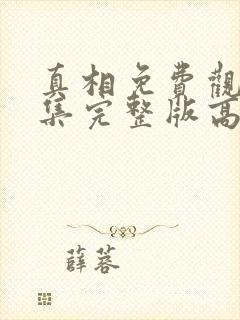 真相免費觀
集完整版高
薛蓉